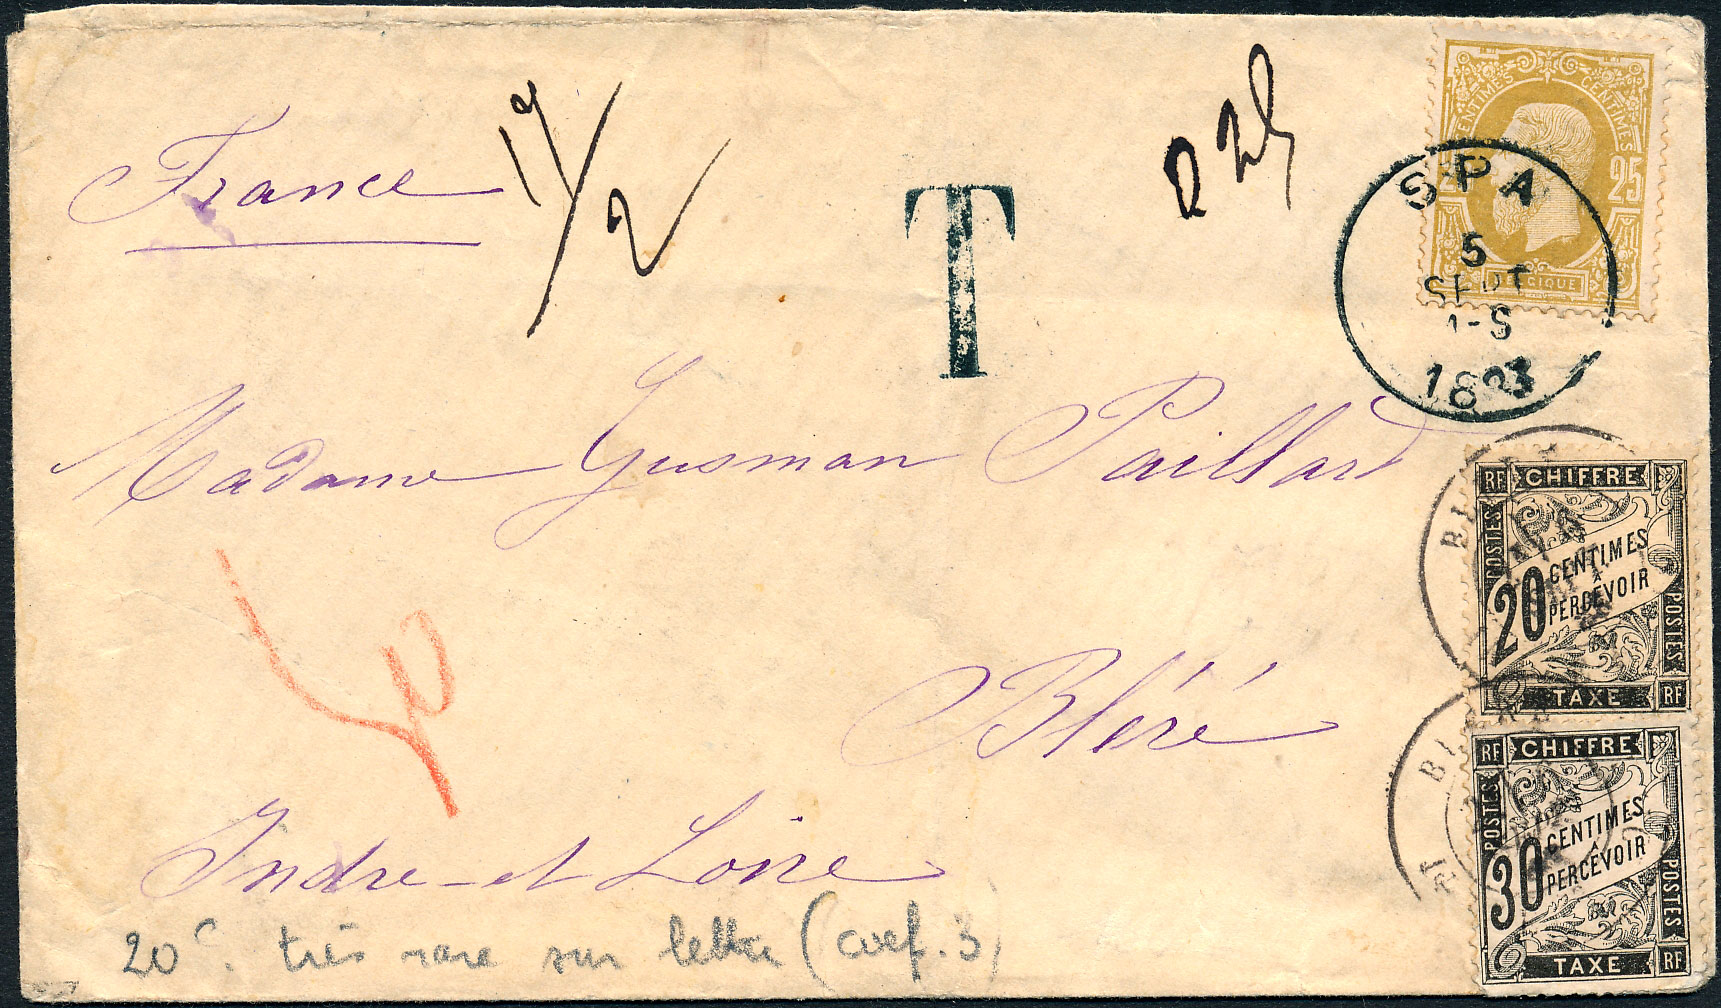 CENTIMES CENTIMES
25 25
BELGIQUE
SPA
5
SEPT
1-S
1883
France
17/2
T
0 25
Madame Gusman Paillard
Bléré
Indre-et Loire
50
20c. très rare sur lettre (coef. 3)
RF CHIFFRE
POSTES
20 CENTIMES
À
PERCEVOIR
POSTES
TAXE RF
RF CHIFFRE
POSTES
30 CENTIMES
À
PERCEVOIR
POSTES
TAXE RF